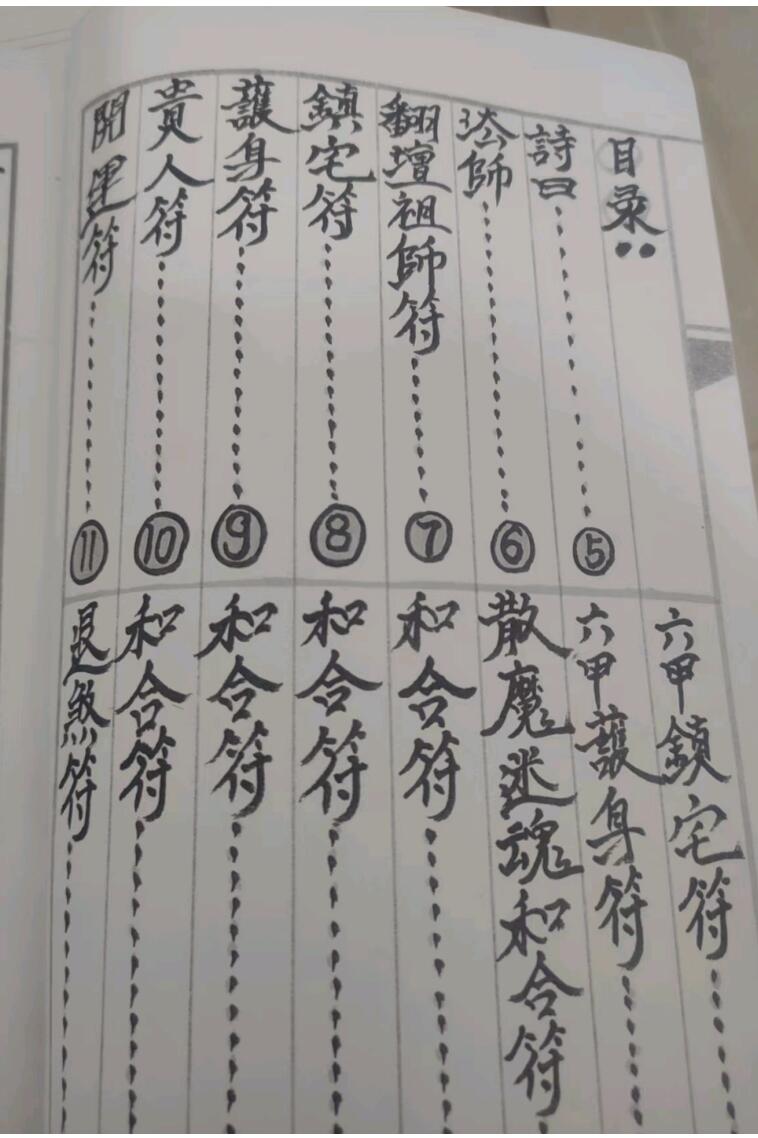 目录:
詩曰…………⑤
法師…………⑥
翻壇祖師符…………⑦
鎮宅符…………⑧
護身符…………⑨
貴人符…………⑩
開運符…………⑪
六甲鎮宅符…………
六甲護身符…………
散魔迷魂和合符…………
和合符…………
和合符…………
和合符…………
和合符…………
退煞符…………